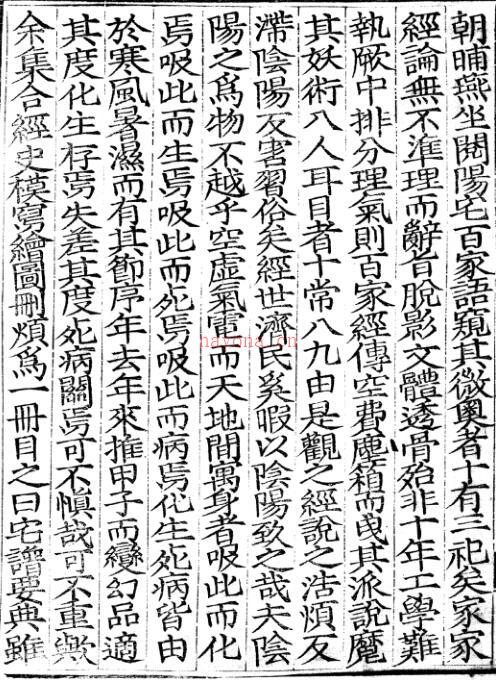 朝晡燕坐閱陽宅百家語窺其微奧者十有三祀矣家家
經論無不準理而辭旨脫影文體透骨殆非十年工學難
執厥中排分理氣則百家經傳空費塵箱而曳其派說魔
其妖術入人耳目者十常八九由是觀之經說之浩煩反
滯陰陽反害習俗矣經世濟民奚暇以陰陽致之哉夫陰
陽之爲物不越乎空虛氣電而天地間寓身者吸此而化
焉吸此而生焉吸此而死焉吸此而病焉化生死病皆由
於寒風暑濕而有其節序年去年來推甲子而變幻品適
其度化生存焉失差其度死病關焉可不愼哉可不重歟
余集合經史模寫繪圖刪煩爲一冊目之曰宅譜要典雖
nayona.cn